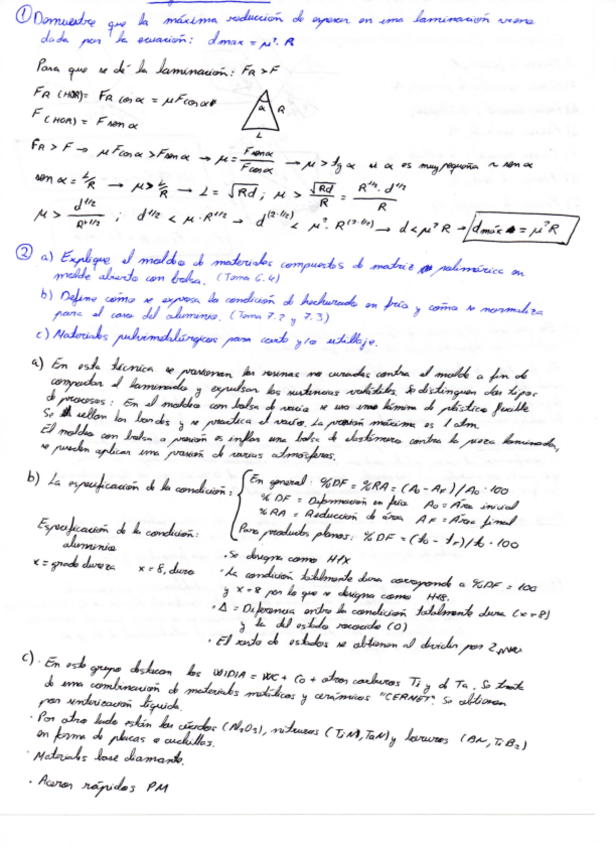 ① Demuestre que la máxima reducción de espesor en una laminación viene
dada por la ecuación: dmax = μ². R
Para que se dé la laminación: FR > F
FR (HOR) = FR cos α = μF cos α
F (HOR) = F sen α
α R
L
FR > F → μFcosα > Fsenα → μ = Fsenα / Fcosα → μ > tg α si α es muy pequeña ~ sen α
sen α = L/R → μ > L/R → L = √Rd ; μ > √Rd / R = R^1/2 · d^1/2 / R
μ > d^1/2 / R^1/2 ; d^1/2 < μ · R^1/2 → d^(2·1/2) < μ² · R^(2·1/2) → d < μ² R → dmáx = μ² R
② a) Explique el moldeo de materiales compuestos de matriz polimérica en
molde abierto con bolsa. (Tema 6.4)
b) Define cómo se expresa la condición de hechurado en frío y cómo se normaliza
para el caso del aluminio. (Tema 7.2 y 7.3)
c) Materiales pulvimetalúrgicos para corte y/o utillaje.
a) En esta técnica se presionan las resinas no curadas contra el molde a fin de
compactar el laminado y expulsar las sustancias volátiles. Se distinguen dos tipos
de procesos: En el moldeo con bolsa de vacío se usa una lámina de plástico flexible
Se sellan los bordes y se practica el vacío. La presión máxima es 1 atm.
El moldeo con bolsa a presión es inflar una bolsa de elastómero contra la pieza laminada,
se pueden aplicar una presión de varias atmósferas.
b) La especificación de la condición: En general: %DF = %RA = (A0 - AF) / A0 · 100
%DF = Deformación en frío A0 = Área inicial
%RA = Reducción de área AF = Área final
Para productos planos: %DF = (to - tF) / to · 100
Especificación de la condición:
aluminio
x = grado dureza x = 8, duro
· Se designa como H1X
· La condición totalmente dura corresponde a %DF = 100
y x = 8 por lo que se designa como H18.
· Δ = Diferencia entre la condición totalmente dura (x = 8)
y la del estado recocido (O)
· El resto de estados se obtienen al dividir por 2
c) · En este grupo destacan los WIDIA = WC + Co + otros carburos Ti y d Ta. Se trata
de una combinación de materiales metálicos y cerámicos "CERMET". Se obtienen
por sinterización líquida.
· Por otro lado están los óxidos (Al2O3), nitruros (TiN), TaN) y boruros (BN, TiB2)
en forma de placas o cuchillas.
· Materiales base diamante.
· Aceros rápidos PM